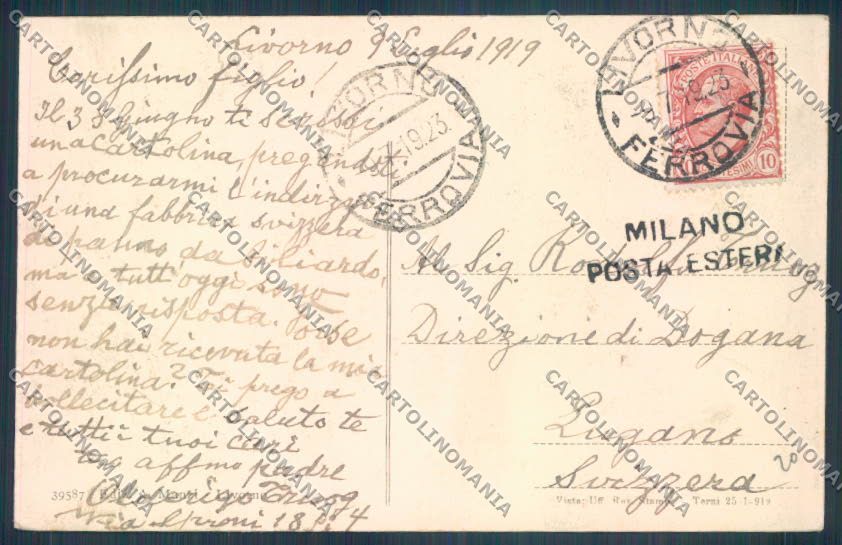 Livorno 9 Luglio 1919
Carissimo figlio!
Il 3 Giugno ti scrissi
una cartolina, pregandoti
a procurarmi l'indirizzo
di una fabbrica svizzera
di panno da biliardo,
ma a tutt'oggi sono
senza risposta. Forse
non hai ricevuta la mia
cartolina? Ti prego a
sollecitare e saluto te
e tutti i tuoi cari
tuo affmo padre
Via 18
39587 Edit. S. Livorno
LIVORNO
19.23
FERROVIA
LIVORNO
19.23
FERROVIA
POSTE ITALIANE
10
MILANO
POSTA ESTERI
Al Sig
Direzione di Dogana
Lugano
Svizzera
Visto: Uff. Rev. Stampa Terni 25-1-919
CARTOLINOMANIA